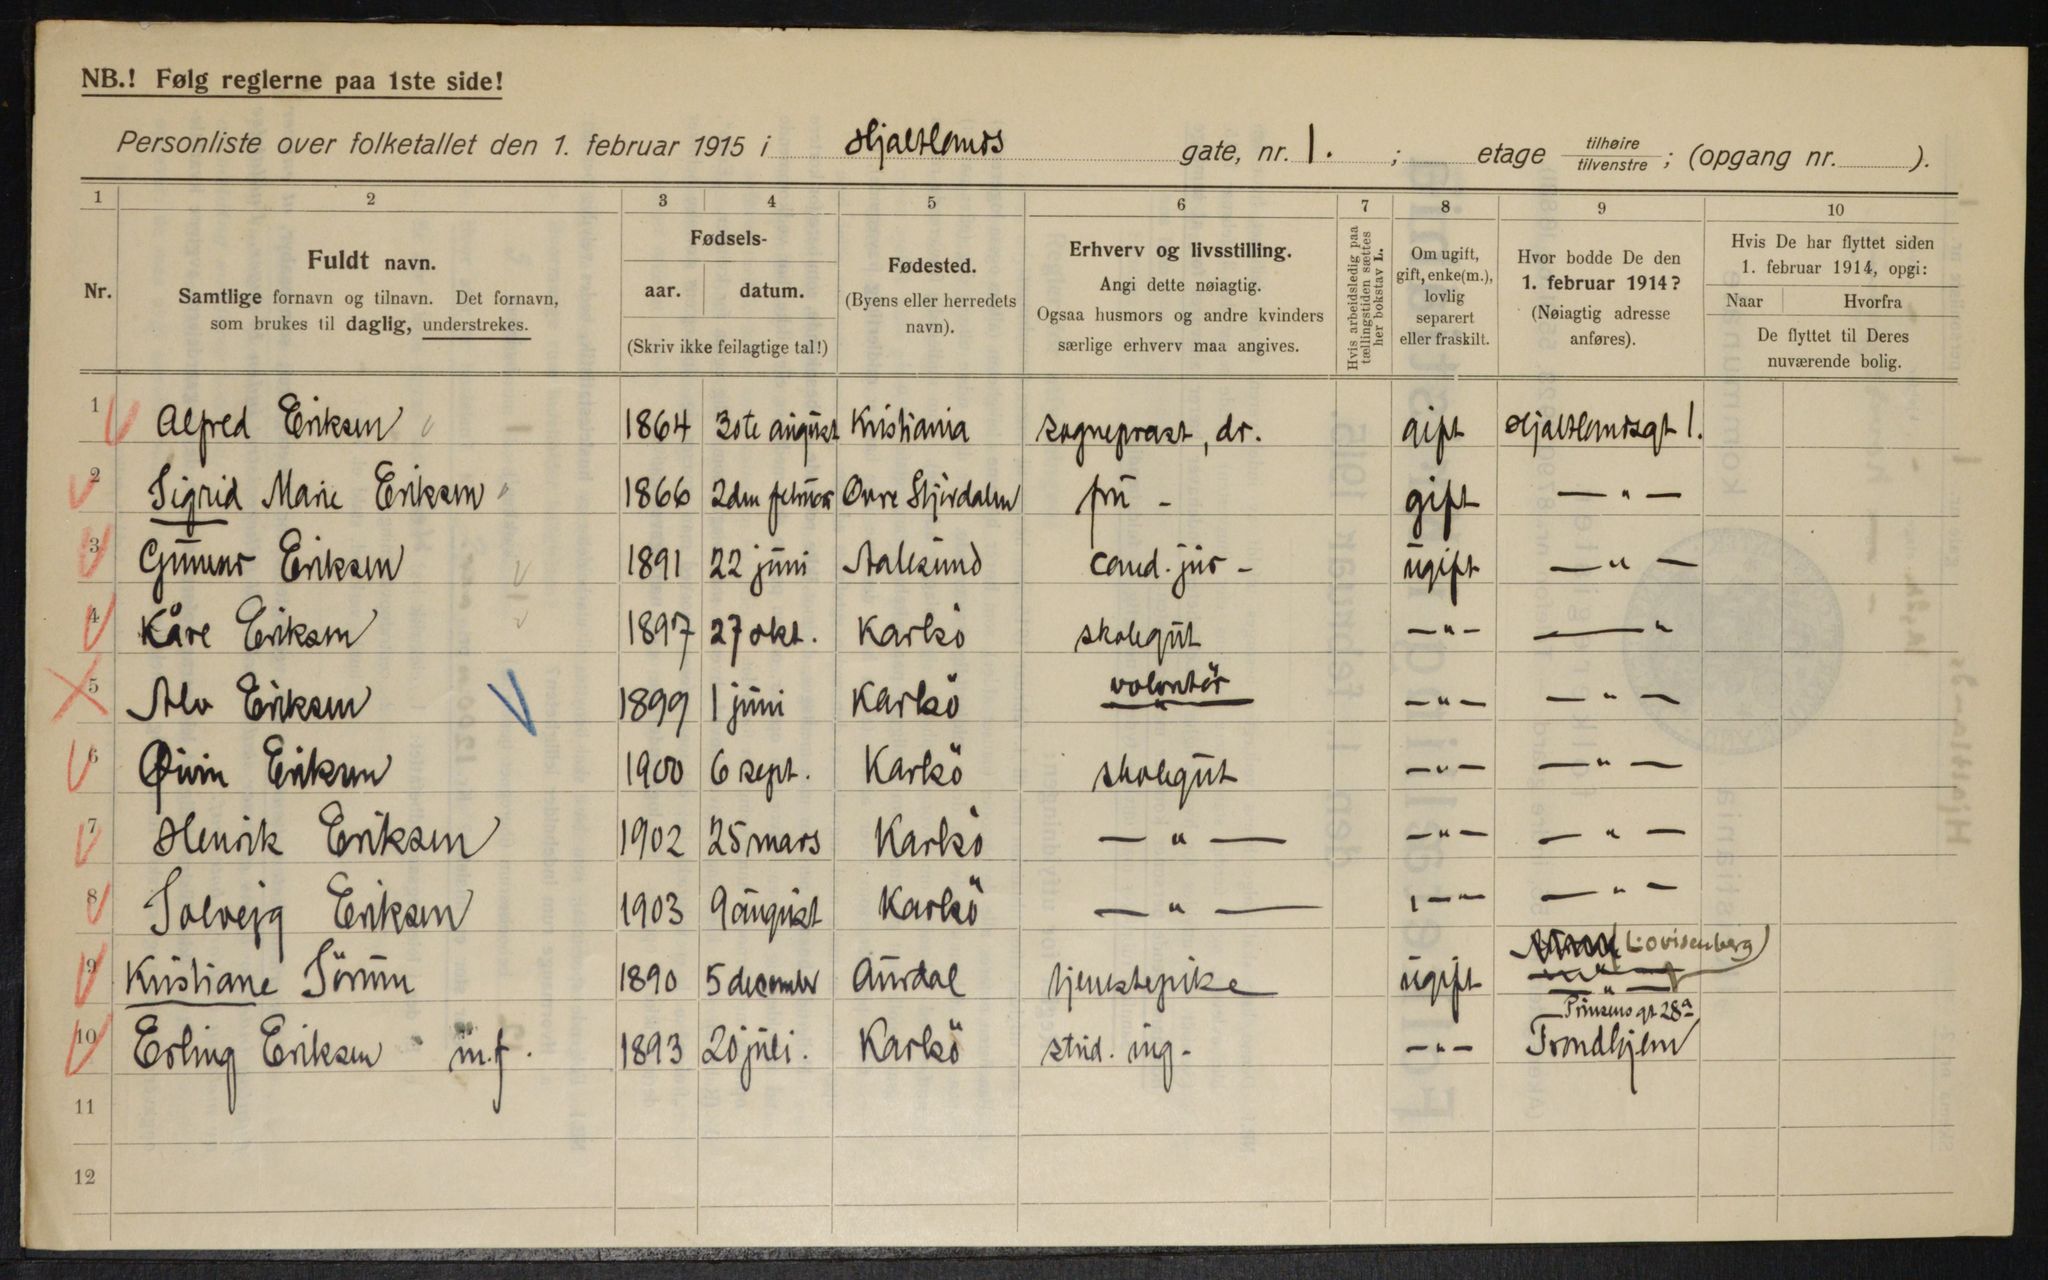 NB.! Følg reglerne paa 1ste side!
Personliste over folketallet den 1. februar 1915 i Hjaltlands gate, nr. 1. ; etage tilhøire tilvenstre ; (opgang nr. ).
1 2 3 4 5 6 7 8 9 10
Nr.
Fuldt navn.
Samtlige fornavn og tilnavn. Det fornavn,
som brukes til daglig, understrekes.
Fødsels-
aar. datum.
(Skriv ikke feilagtige tal!)
Fødested.
(Byens eller herredets
navn).
Erhverv og livsstilling.
Angi dette nøiagtig.
Ogsaa husmors og andre kvinders
særlige erhverv maa angives.
Hvis arbeidsledig paa
tællingstiden sættes
her bokstav L.
Om ugift,
gift, enke(m.),
lovlig
separert
eller fraskilt.
Hvor bodde De den
1. februar 1914?
(Nøiagtig adresse
anføres).
Hvis De har flyttet siden
1. februar 1914, opgi:
Naar Hvorfra
De flyttet til Deres
nuværende bolig.
1 Alfred Eriksen 1864 30te august Kristiania sogneprest, dr. gift Hjaltlandsgt 1.
2 Sigrid Marie Eriksen 1866 2den februar Øvre Stjördalen fru - gift — " —
3 Gunnar Eriksen 1891 22 juni Aalesund cand. jur - ugift — " —
4 Kåre Eriksen 1897 27 okt. Karlsö skolegut — " — — "
5 Alv Eriksen 1899 1 juni Karlsö volontör — " — — " —
6 Øivin Eriksen 1900 6 sept. Karlsö skolegut — " — — " —
7 Henrik Eriksen 1902 25 mars Karlsö — " — — " — — " —
8 Solvejg Eriksen 1903 9 august Karlsö — " — — " — — " —
9 Kristiane Sörum 1890 5 december Aurdal tjenstepike ugift Lovisenberg
— " —
10 Erling Eriksen m.f. 1893 20 juli. Karlsö stud. ing - — " — Prinsens gt 28a
Trondhjem
11
12